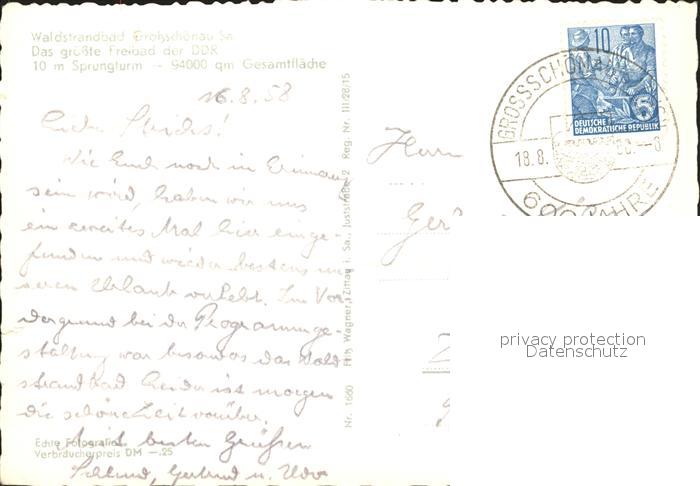 Waldstrandbad Großschönau Sa.
Das größte Freibad der DDR
10 m Sprungturm — 94000 qm Gesamtfläche
16.8.58
Wie Euch noch in Erinnerung
sein wird, haben wir uns
ein zweites Mal hier einge-
funden und wieder bestens un-
seren Urlaub verlebt. Im Vor-
dergrund bei der Programmge-
staltung war besonders das Wald-
strandbad. Leider ist morgen
die schöne Zeit vorüber.
Mit besten Grüßen
Gertrud u. Udo
Echte Fotografie
Verbraucherpreis DM —.25
Nr. 1660 Fritz Wagner, Zittau i. Sa., Juststraße 2 Reg. Nr. III/28/15
Herrn
10
5
DEUTSCHE
DEMOKRATISCHE REPUBLIK
GROSSSCHÖNAU
18.8.
600 JAHRE
privacy protection
Datenschutz